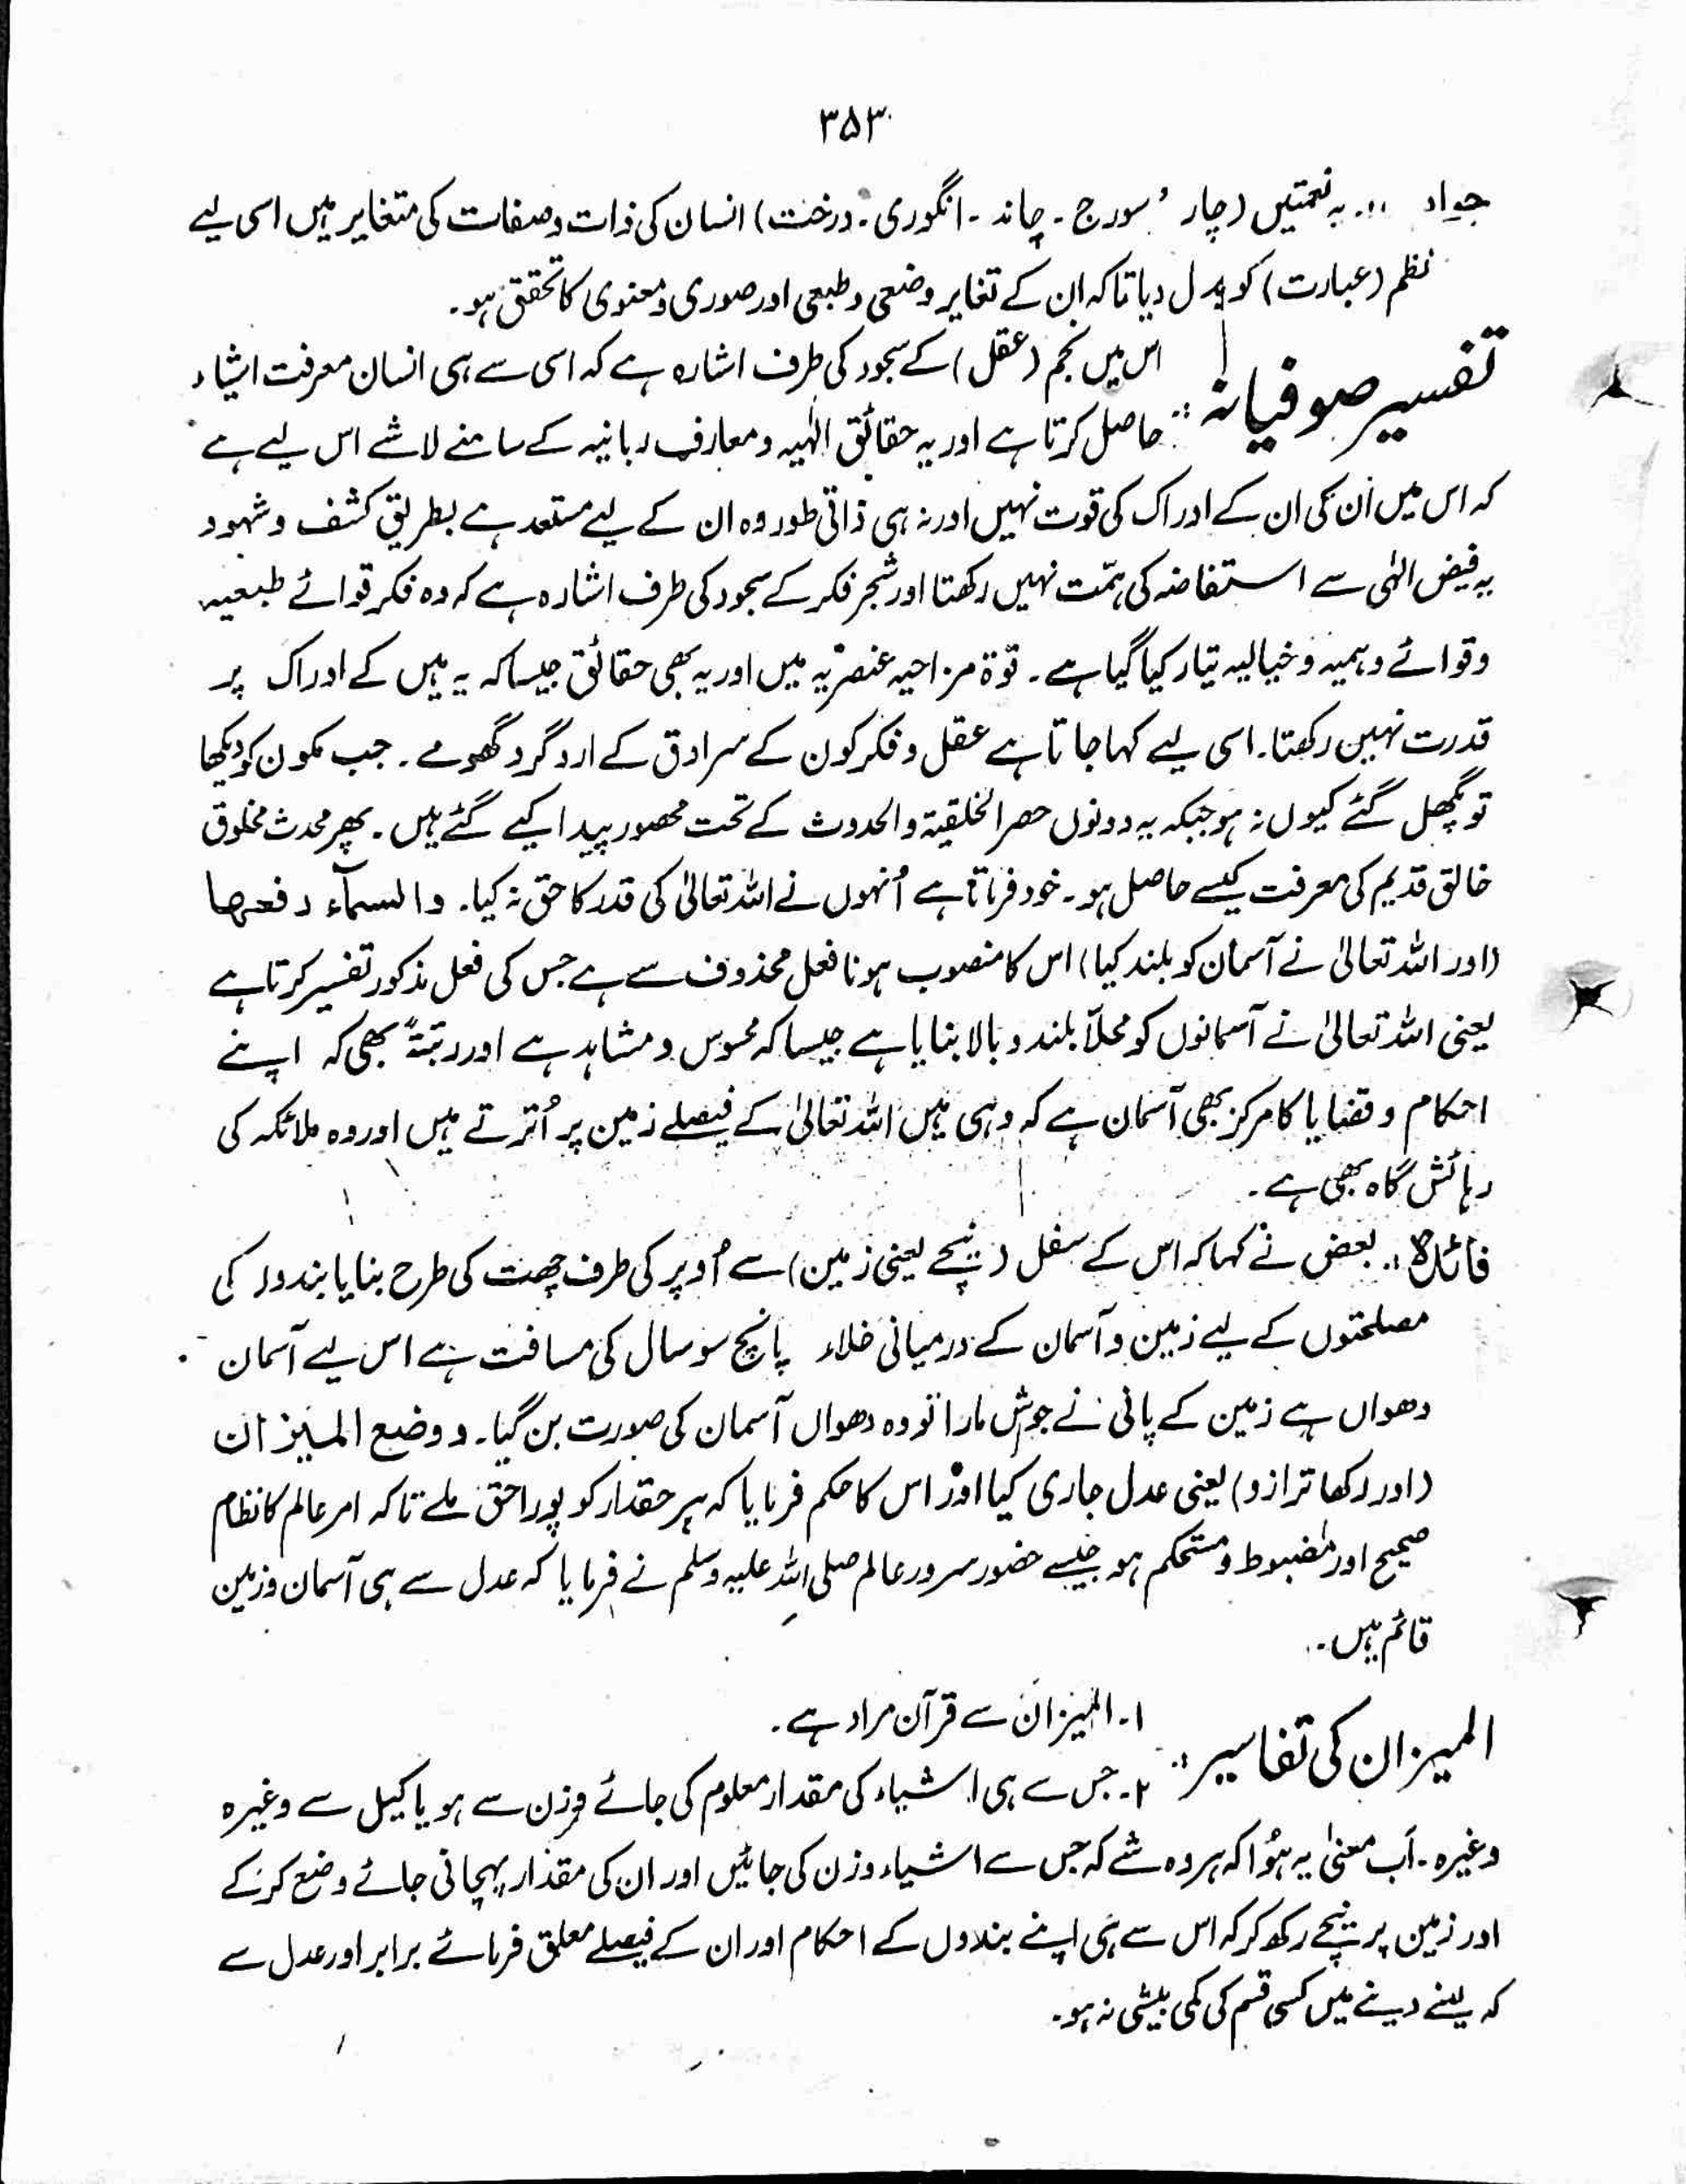 ۳۵۳
جواب :۔ یہ نعمتیں (چار، سورج ۔ چاند ۔ انگوری ۔ درخت) انسان کی ذات و صفات کی متغایر ہیں اسی لیے
نظم (عبارت) کو بدل دیا تاکہ ان کے تغایر وضعی و طبعی اور صوری و معنوی کا تحقق ہو۔
تفسیر صوفیانہ :: اس میں نجم (عقل) کے سجود کی طرف اشارہ ہے کہ اسی سے ہی انسان معرفت اشیاء
حاصل کرتا ہے اور یہ حقائق الٰہیہ و معارف ربانیہ کے سامنے لاشے اس لیے ہے
کہ اس میں اُن کی ان کے ادراک کی قوت نہیں اور نہ ہی ذاتی طور وہ ان کے لیے مستعد ہے بطریق کشف و شہود
یہ فیض الٰہی سے استفاضہ کی ہمّت نہیں رکھتا اور شجر فکر کے سجود کی طرف اشارہ ہے کہ وہ فکر قوائے طبعیہ
وقوائے وہمیہ و خیالیہ تیار کیا گیا ہے ۔ قوۃ مزاجیہ عنصریّہ میں اور یہ بھی حقائق جیسا کہ یہ ہیں کے ادراک پر
قدرت نہیں رکھتا۔ اسی لیے کہا جاتا ہے عقل و فکر کون کے سرادق کے اردگرد گھومے ۔ جب مکون کو دیکھا
تو پگھل گئے کیوں نہ ہو جبکہ یہ دونوں حصر الخلقیۃ والحدوث کے تحت محصور پیدا کیے گئے ہیں ۔ پھر محدث مخلوق
خالق قدیم کی معرفت کیسے حاصل ہو ۔ خود فرماتا ہے اُنہوں نے اللہ تعالیٰ کی قدر کا حق نہ کیا ۔ والسمآء رفعہا
(اور اللہ تعالیٰ نے آسمان کو بلند کیا) اس کا منصوب ہونا فعل محذوف سے ہے جس کی فعل مذکور تفسیر کرتا ہے
یعنی اللہ تعالیٰ نے آسمانوں کو محلاً بلند و بالا بنایا ہے جیسا کہ محسوس و مشاہد ہے اور رتبتہً بھی کہ اپنے
احکام و قضایا کا مرکز بھی آسمان ہے کہ وہی ہیں اللہ تعالیٰ کے فیصلے زمین پر اُترتے ہیں اور وہ ملائکہ کی
رہائش گاہ بھی ہے ۔
فائدہ :۔ بعض نے کہا کہ اس کے سفل (نیچے یعنی زمین) سے اُوپر کی طرف چھت کی طرح بنایا بندوں کی
مصلحتوں کے لیے زمین و آسمان کے درمیانی خلاء پانچ سو سال کی مسافت ہے اس لیے آسمان
دھواں ہے زمین کے پانی نے جوش مارا تو وہ دھواں آسمان کی صورت بن گیا ۔ و وضع المیزان
(اور رکھا ترازو) یعنی عدل جاری کیا اور اس کا حکم فرمایا کہ ہر حقدار کو پورا حق ملے تاکہ امر عالم کا نظام
صحیح اور مضبوط و مستحکم ہو جیسے حضور سرور عالم صلی اللہ علیہ وسلم نے فرمایا کہ عدل سے ہی آسمان و زمین
قائم ہیں ۔
المیزان کی تفاسیر :: ۱۔ المیزان سے قرآن مراد ہے ۔
۲۔ جس سے ہی اشیاء کی مقدار معلوم کی جائے وزن سے ہو یا کیل سے وغیرہ
وغیرہ ۔ اَب معنیٰ یہ ہُوا کہ ہر وہ شے کہ جس سے اشیاء وزن کی جائیں اور ان کی مقدار پہچانی جائے وضع کر کے
اور زمین پر نیچے رکھ کر کہ اس سے ہی اپنے بندوں کے احکام اور ان کے فیصلے معلق فرمائے برابر اور عدل سے
کہ لینے دینے میں کسی قسم کی کمی بیشی نہ ہو ۔